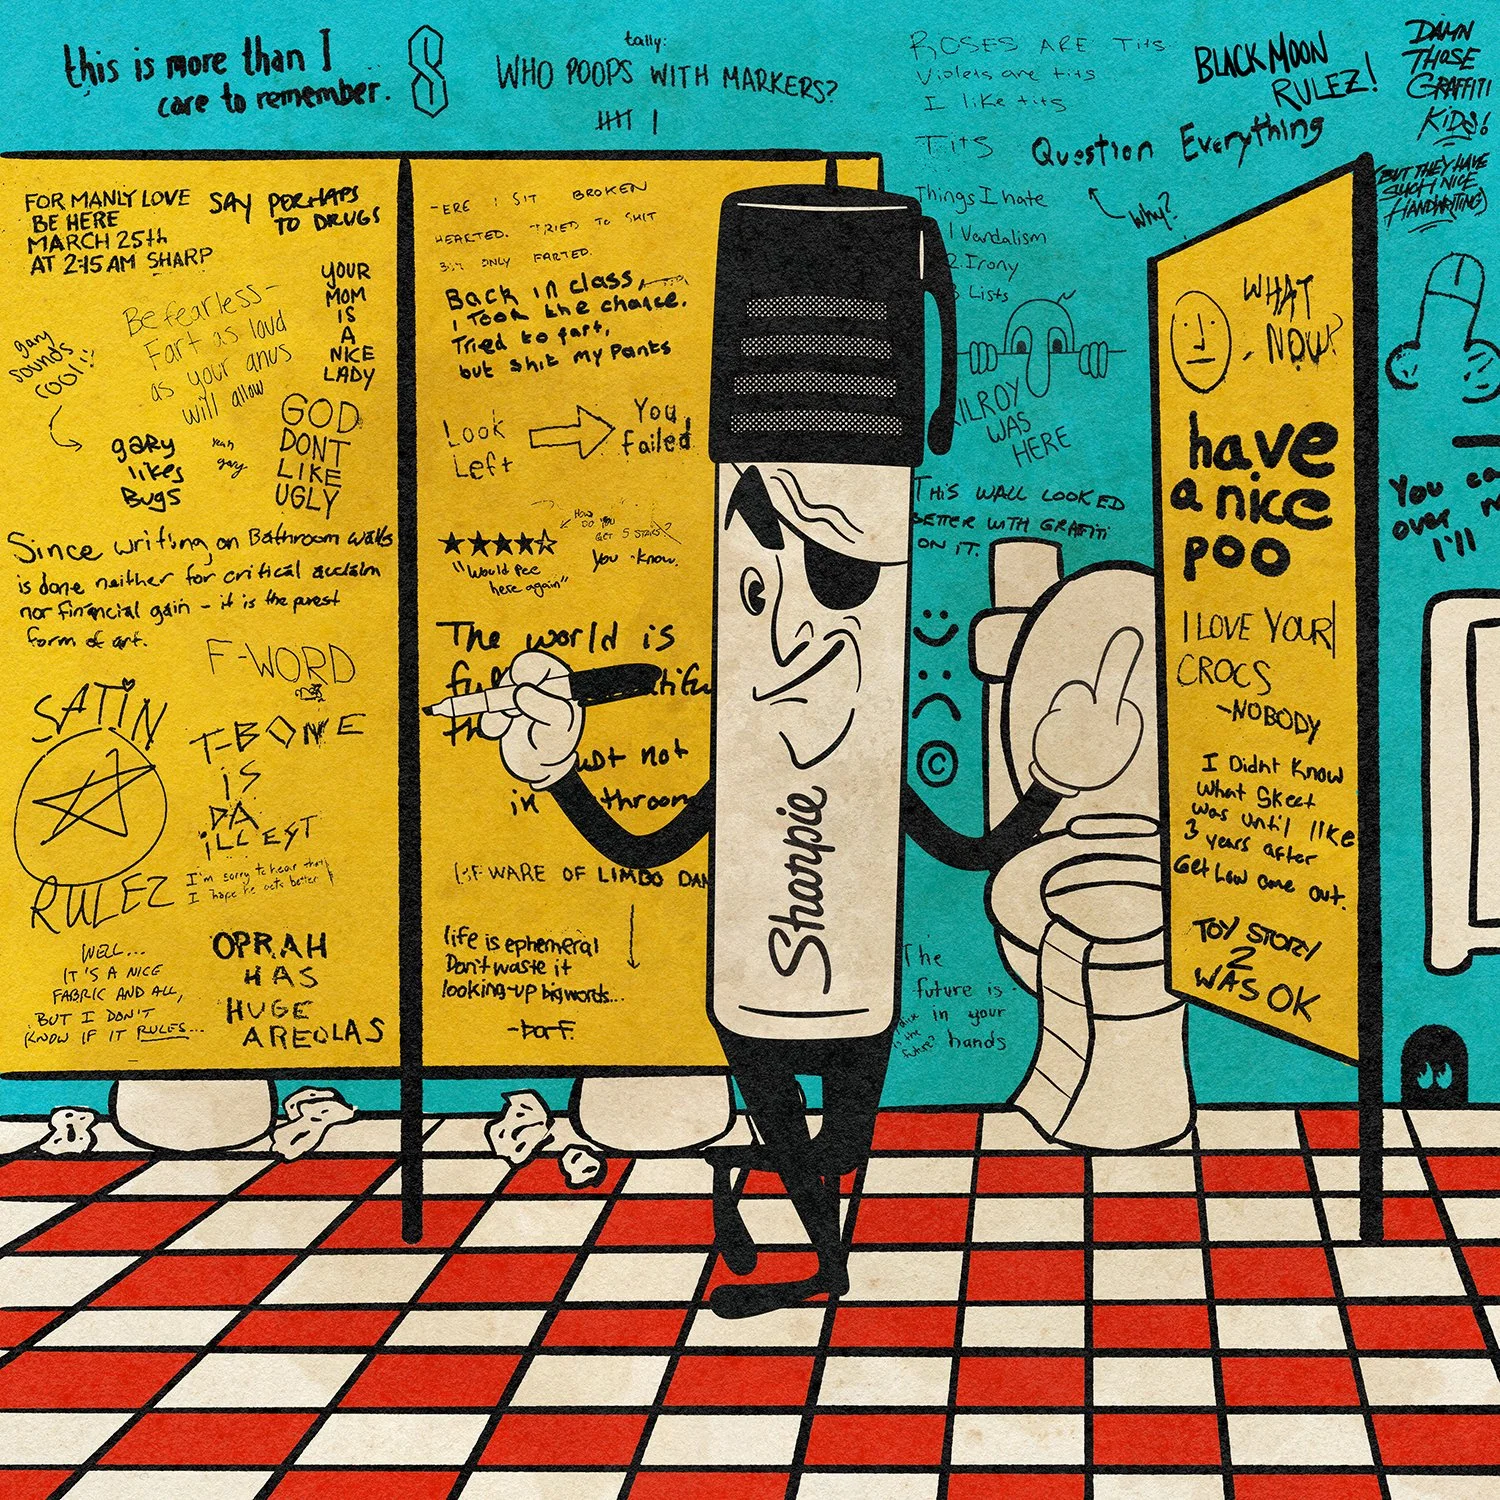 this is more than I
care to remember.
tally:
WHO POOPS WITH MARKERS?
ROSES ARE Tits
Violets are tits
I like tits
Tits
BLACK MOON
RULEZ!
DAMN
THOSE
GRAFFITI
KiDS!
(BUT THEY HAVE
SUCH NICE
HANDWRITING)
Question Everything
why?
Things I hate
1 Vandalism
2. Irony
3 Lists
KILROY
WAS
HERE
THiS WALL LOOKED
BETTER WITH GRAFITI
ON IT.
©
The
future is
in your
hands
is the
future?
FOR MANLY LOVE
BE HERE
MARCH 25th
AT 2:15 AM SHARP
SAY PERHAPS
TO DRUGS
YOUR
MOM
IS
A
NICE
LADY
Be fearless-
Fart as loud
as your anus
will allow
gary
sounds
cool!!
gary
likes
Bugs
yeah
gary
GOD
DONT
LIKE
UGLY
Since writing on Bathroom walls
is done neither for critical acclaim
nor financial gain - it is the purest
form of art.
F-WORD
SATiN
RULEZ
T-BONE
iS
DA
iLLEST
I'm sorry to hear that
I hope he gets better
WELL...
IT'S A NICE
FABRIC AND ALL,
BUT I DON'T
KNOW IF IT RULES...
OPRAH
HAS
HUGE
AREOLAS
-ERE I SIT BROKEN
HEARTED. TRIED To SHIT
BUT ONLY FARTED.
Back in class,
I Took the chance.
Tried to fart,
but shit my Pants
Look
Left
You
failed
"Would Pee
here again"
How
DO YOU
GET 5 STARS?
You know.
The world is
in
not
BEWARE OF LIMBO DAN
life is ephemeral
Don't waste it
looking-up big words...
-barf.
Sharpie
WHAT
NOW?
have
a nice
poo
I LOVE YOUR
CROCS
-NOBODY
I Didnt Know
what Skeet
was until like
3 years after
Get Low came out.
TOY STORY
2
WAS OK
You ca
over
I'll